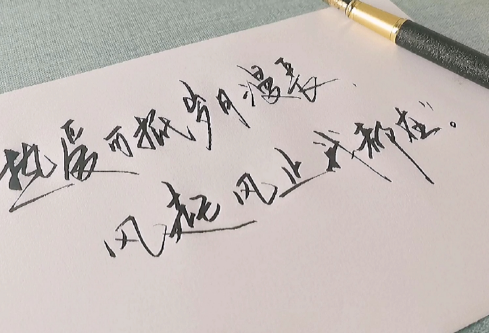 热爱可抵岁月漫长
风起风止我都在。